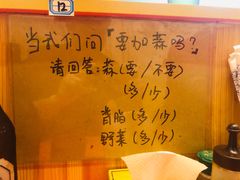 12
当我们问「要加蒜吗?」
请回答:蒜(要/不要)
(多/少)
背脂(多/少)
野菜(多/少)